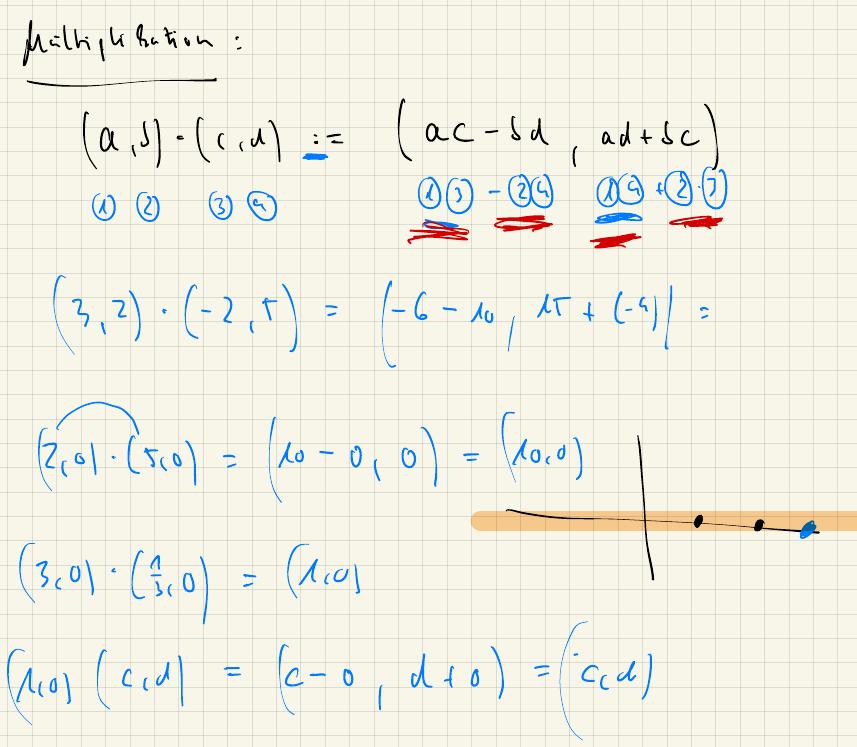 Multiplikation :
(a,b) · (c,d) := (ac - bd , ad + bc)
① ② ③ ④ ①③ - ②④ ①④ + ②·③
(3,2) · (-2,5) = (-6 - 10 , 15 + (-4)) =
(2,0) · (5,0) = (10 - 0, 0) = (10,0)
(3,0) · (1/3,0) = (1,0)
(1,0) (c,d) = (c - 0 , d + 0) = (c,d)